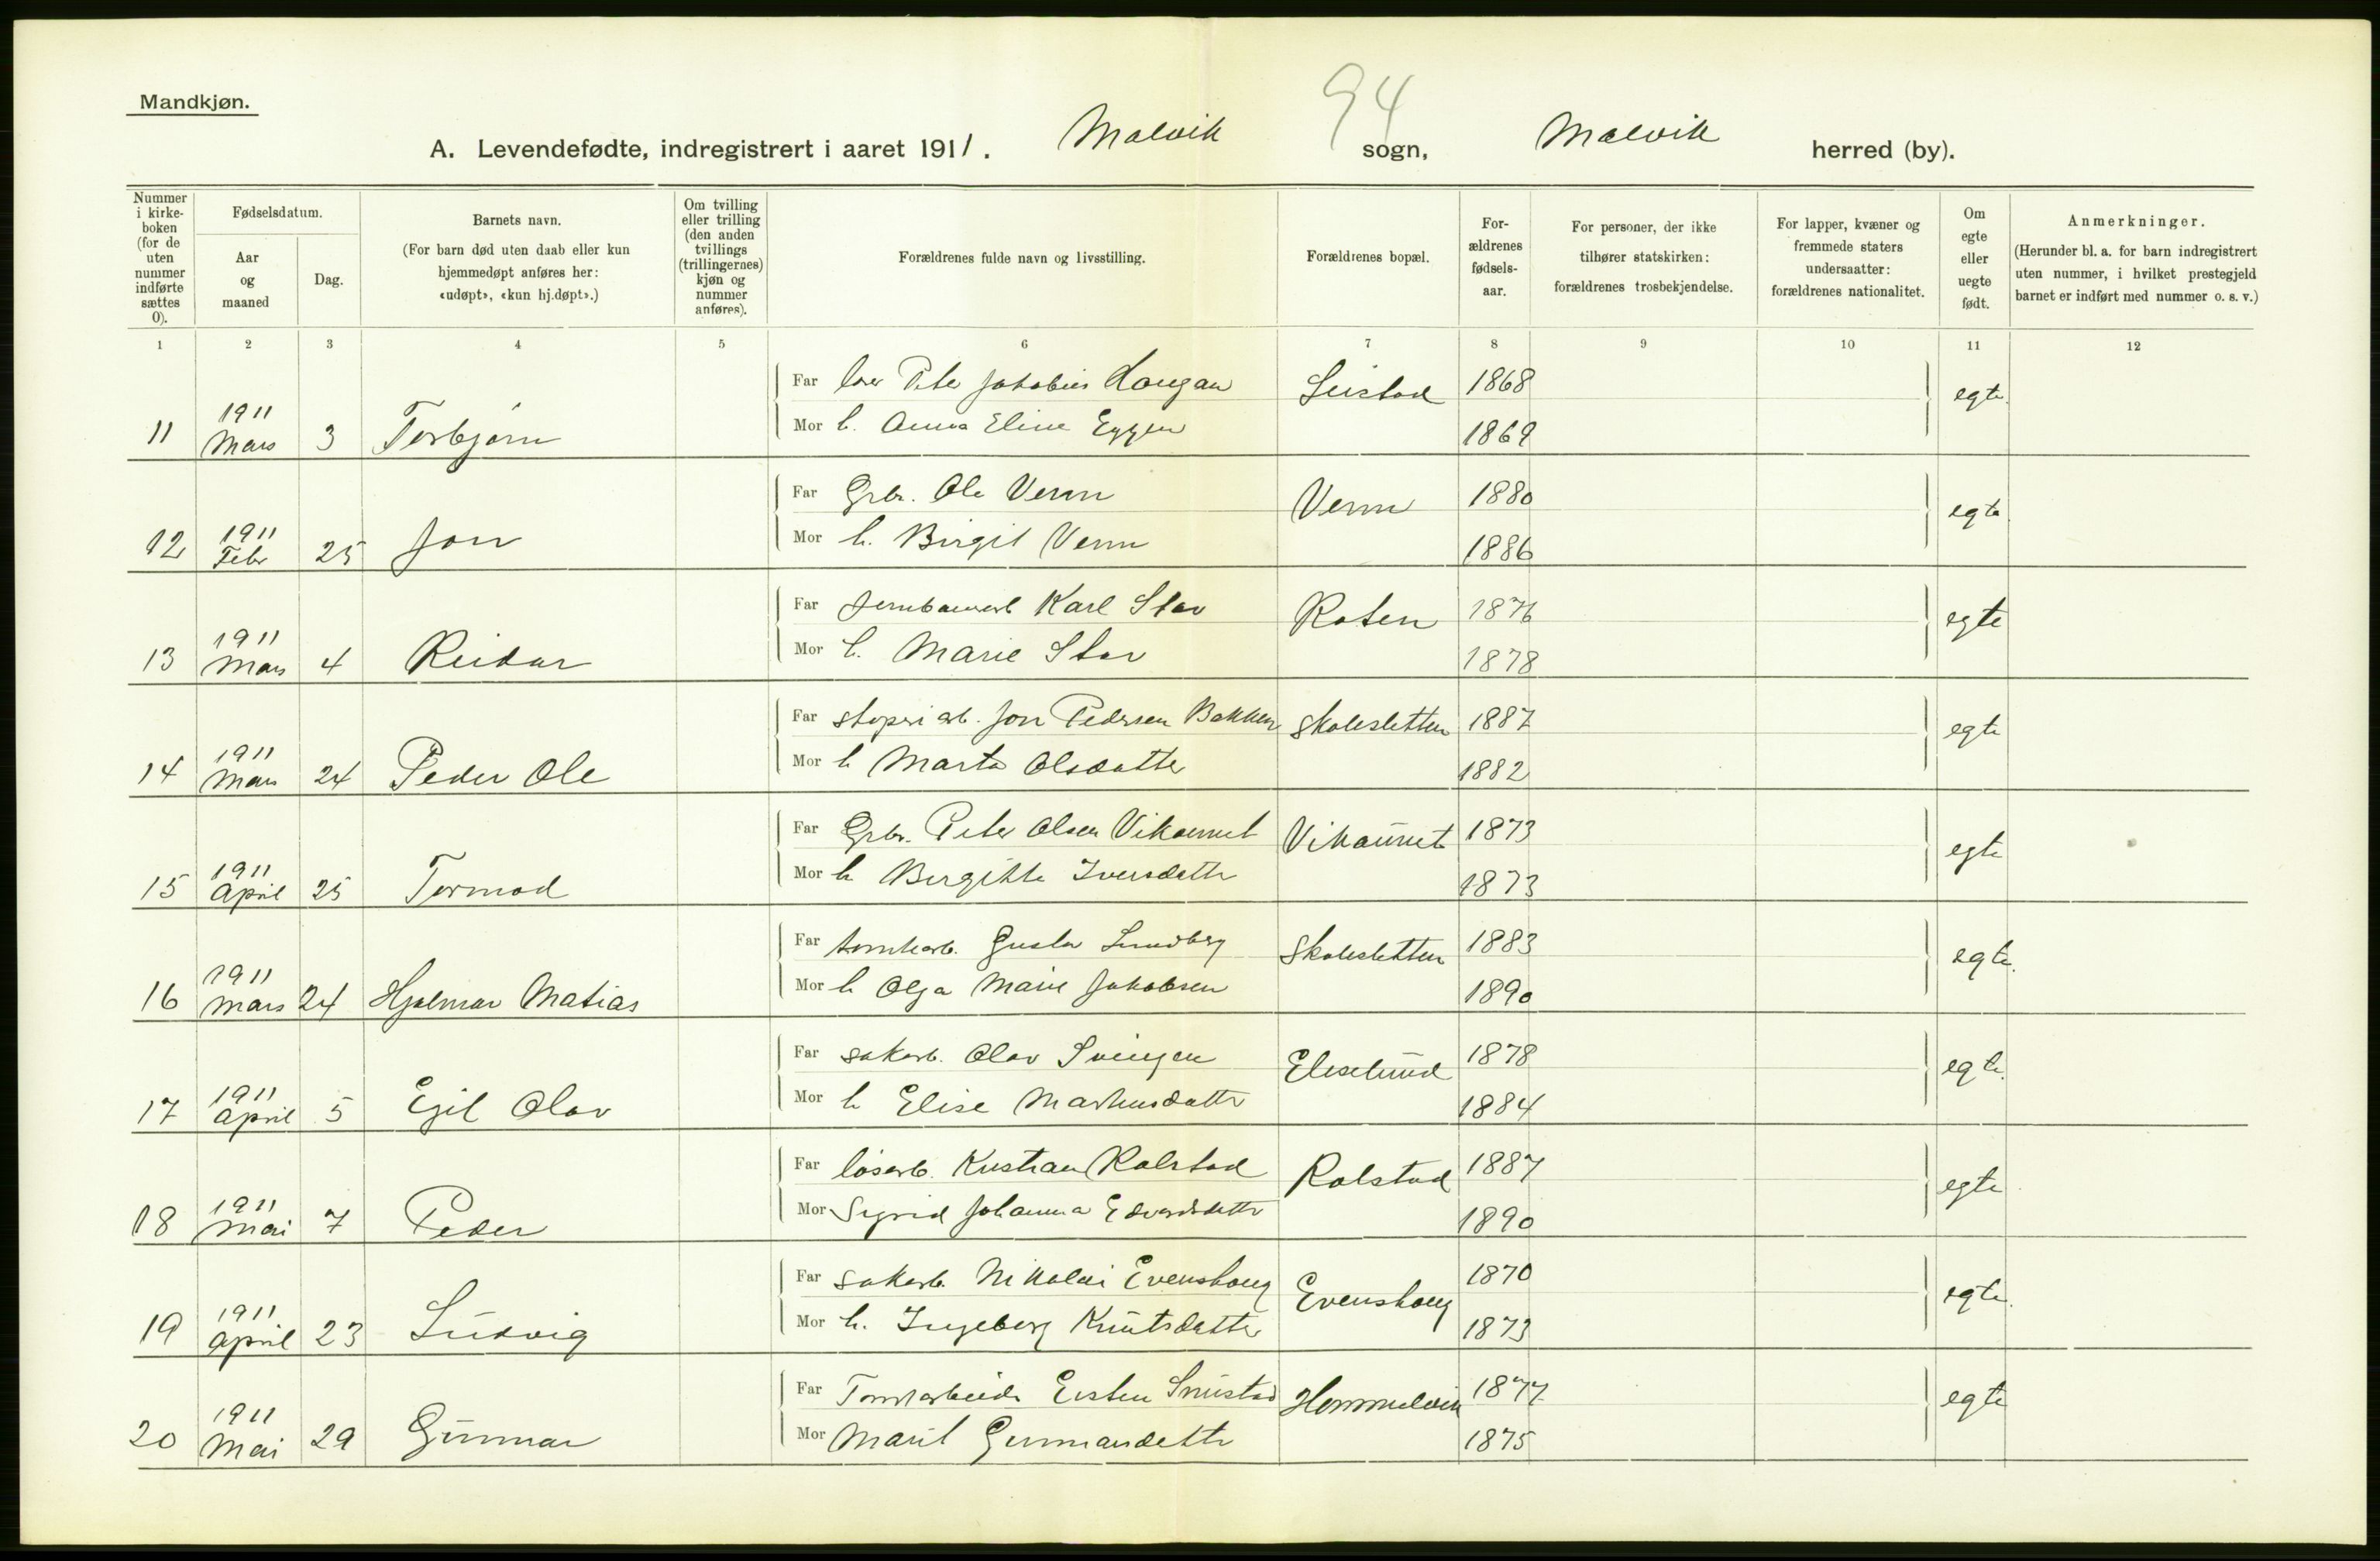 94
Mandkjøn.
A. Levendefødte, indregistrert i aaret 1911. Malvik sogn, Malvik herred (by).
Nummer i kirke-boken (for de uten nummer indførte sættes 0).
Fødselsdatum.
Aar og maaned
Dag.
Barnets navn.
(For barn død uten daab eller kun hjemmedøpt anføres her: «udøpt», «kun hj.døpt».)
Om tvilling eller trilling (den anden tvillings (trillingernes) kjøn og nummer anføres).
Forældrenes fulde navn og livsstilling.
Forældrenes bopæl.
For-ældrenes fødsels-aar.
For personer, der ikke tilhører statskirken: forældrenes trosbekjendelse.
For lapper, kvæner og fremmede staters undersaatter: forældrenes nationalitet.
Om egte eller uegte født.
Anmerkninger.
(Herunder bl. a. for barn indregistrert uten nummer, i hvilket prestegjeld barnet er indført med nummer o. s. v.)
1 2 3 4 5 6 7 8 9 10 11 12
Far Peter Jakobsen Haugan Leistad 1868 egte.
11 1911 Mars 3 Torbjørn
Mor h. Anna Eline Eggen 1869
Far Grbr. Ole Venn Venn 1880 egte
12 1911 Febr 25 Jon
Mor h. Birgit Venn 1886
Far Karl Stav 1876 egte
13 1911 Mars 4 Reidar
Mor h. Marie Stav 1878
Far Jon Pedersen Bakken Skolesletten 1887 egte
14 1911 Mars 24 Peder Ole
Mor h Marta Olsdatter 1882
Far Grbr. Peter Olsen Vikaunet Vikaunet 1873 egte
15 1911 April 25 Tormod
Mor h Bergitte Iversdattr 1873
Far Gustav Lundberg Skolesletten 1883 egte.
16 1911 Mars 24 Hjalmar Matias
Mor h Olga Marie Jakobsen 1890
Far sakarb. Olav Svingen Eliselund 1878 egte.
17 1911 April 5 Egil Olav
Mor h Elise Martinsdattr 1884
Far løsarb. Kristian Rolstad Rolstad 1887 egte
18 1911 Mai 7 Peder
Mor Sigrid Johanna Edvardsdattr 1890
Far sakarb. Nikolai Evenshaug Evenshaug 1870 egte.
19 1911 April 23 Ludvig
Mor h. Ingeborg Knutsdatter 1873
Far Tomtarbeider Eisten Snustad Hommelvik 1877 egte
20 1911 Mai 29 Gunnar
Mor Marit Gunnarsdattr 1875